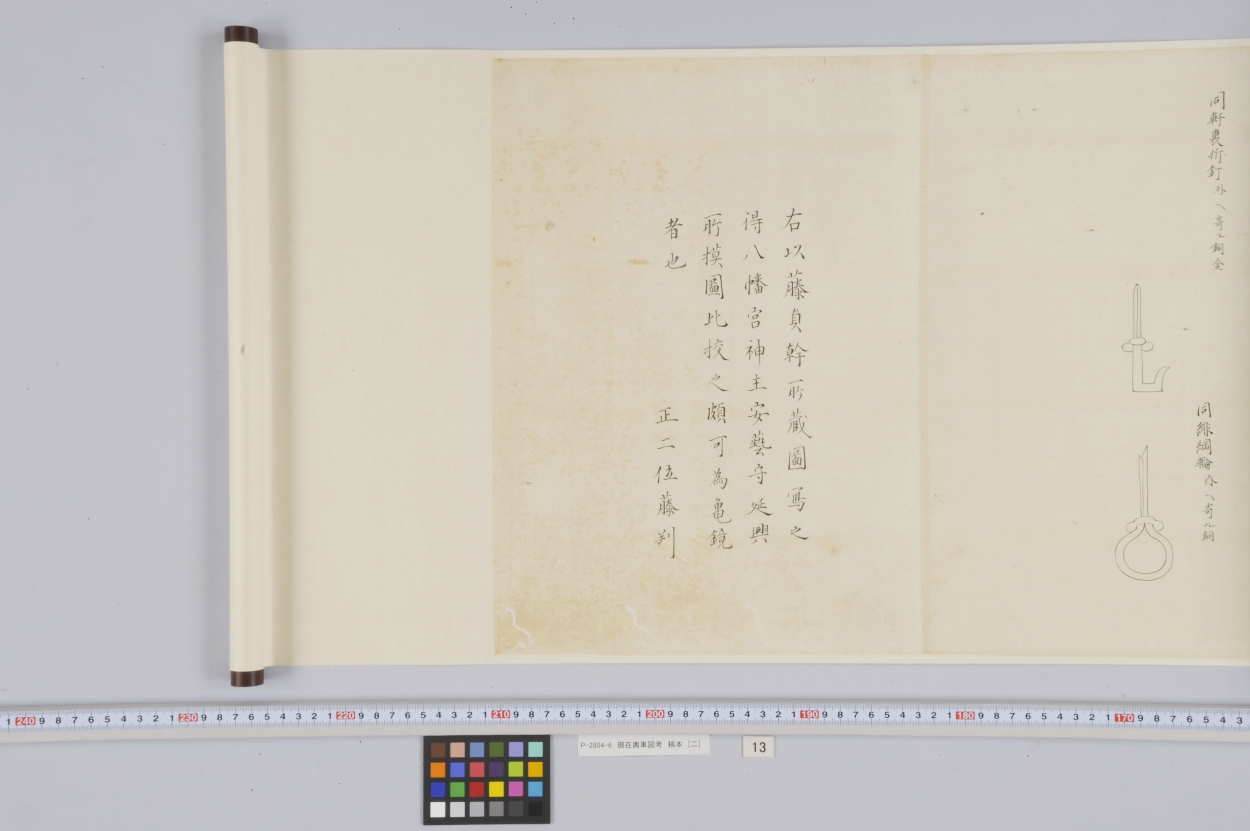 同軒裏折釘外ヘ寄ル銅金
同緋綱輪外ヘ寄ル銅
右以藤貞幹所蔵圖寫之
得八幡宮神主安藝守延興
所摸圖比挍之頗可為亀鏡
者也
正二位藤判
1 240 9 8 7 6 5 4 3 2 1 230 9 8 7 6 5 4 3 2 1 220 9 8 7 6 5 4 3 2 1 210 9 8 7 6 5 4 3 2 1 200 9 8 7 6 5 4 3 2 1 190 9 8 7 6 5 4 3 2 1 180 9 8 7 6 5 4 3 2 1 170 9 8 7 6 5 4 3
P-2804-6 現在輿車図考 稿本 [二]
13